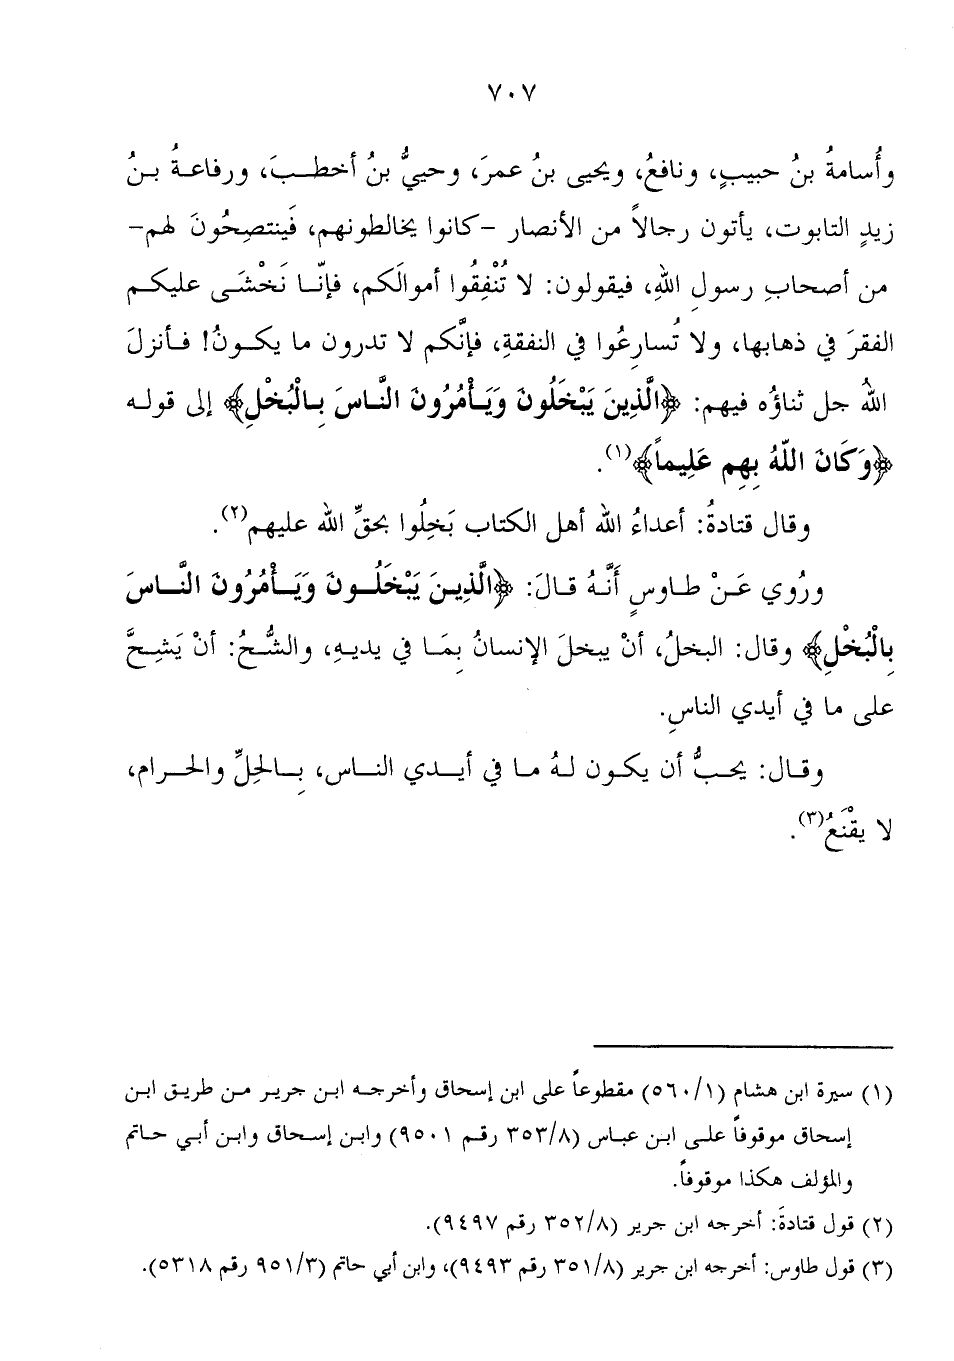 ٧٠٧
وأُسامةُ بنُ حبيبٍ، ونافعُ، ويحيى بنُ عمرَ، وحييُّ بنُ أخطـبَ، ورفاعـةُ بـنُ
زيدٍ التابوت، يأتون رجالاً من الأنصار -كانوا يخالطونهم، فَينتصِحُونَ لهم-
من أصحابِ رسولِ اللهِ، فيقولون: لا تُنْفِقُوا أموالَكم، فإنّـا نَخْشَـى عليكـم
الفقرَ في ذهابها، ولا تُسارِعُوا في النفقةِ، فإنَّكم لا تدرون ما يكـونُ! فـأنزلَ
اللهُ جل ثناؤُه فيهم: ﴿الَّذِينَ يَبْخَلُونَ وَيَـأْمُرُونَ النَّـاسَ بِـالْبُخْلِ﴾ إلى قولـه
﴿وَكَانَ اللَّهُ بِهِم عَلِيماً﴾(١).
وقال قتادةُ: أعداءُ الله أهل الكتاب بَخِلُوا بحقِّ الله عليهم(٢).
ورُوي عَـنْ طـاوسٍ أَنَّـهُ قـالَ: ﴿الَّذِيـنَ يَبْخَلُـونَ وَيَـأْمُرُونَ النَّـاسَ
بِالْبُخْلِ﴾ وقال: البخلُ، أنْ يبخلَ الإنسانُ بِمَـا في يديـهِ، والشُّـحُ: أنْ يَشِـحَّ
على ما في أيدي الناسِ.
وقـال: يحبُّ أن يكـون لـهُ مـا في أيـدي النـاس، بِـالحِلِّ والحـرام،
لا يقْنَعُ(٣).
(١) سيرة ابن هشام (٥٦٠/١) مقطوعاً على ابن إسحاق وأخرجـه ابـن جريـر مـن طريق ابن
إسحاق موقوفاً علـى ابـن عباس (٣٥٣/٨ رقـم ٩٥٠١) وابـن إسـحاق وابـن أبـي حـاتم
والمؤلف هكذا موقوفاً.
(٢) قول قتادةَ: أخرجه ابن جرير (٣٥٢/٨ رقم ٩٤٩٧).
(٣) قول طاوس: أخرجه ابن جرير (٣٥١/٨ رقم ٩٤٩٣)، وابن أبي حاتم (٩٥١/٣ رقم ٥٣١٨).